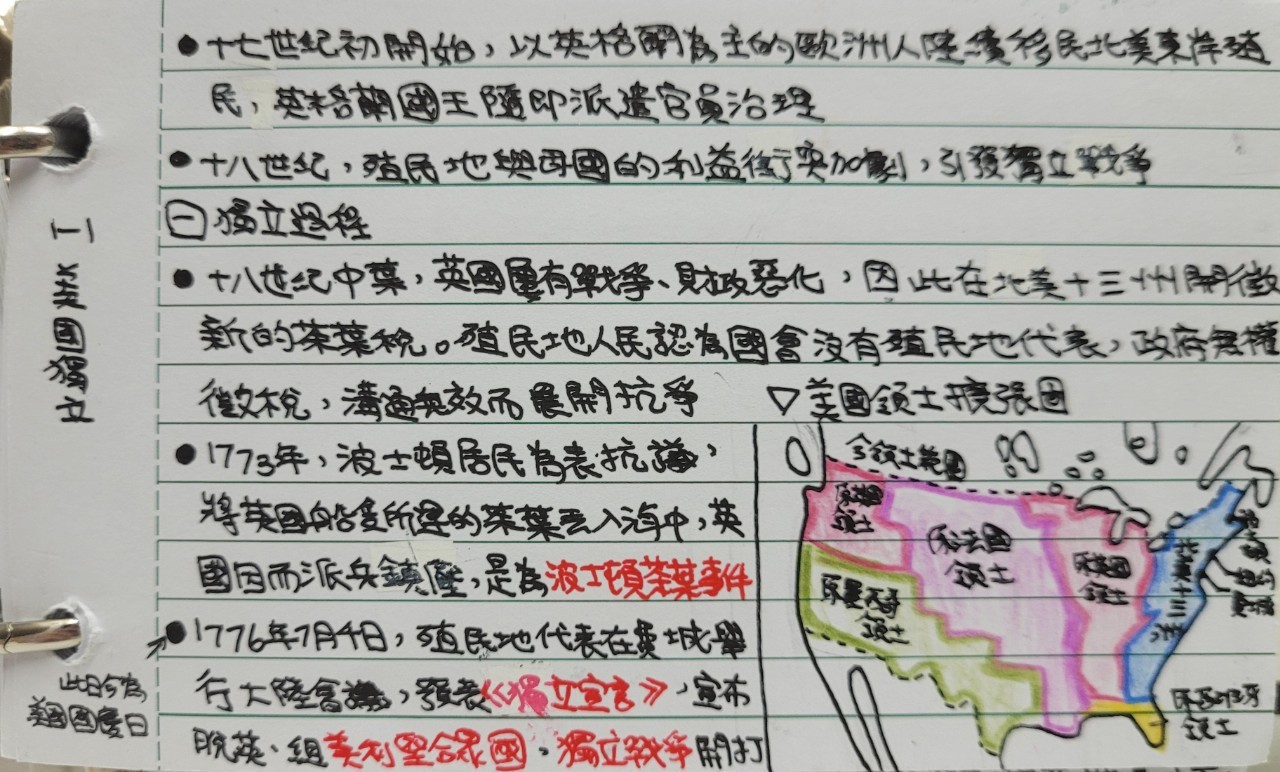 ●十七世紀初開始，以英格蘭為主的歐洲人陸續移民北美東岸殖
民，英格蘭國王隨即派遣官員治理
●十八世紀，殖民地與母國的利益衝突加劇，引發獨立戰爭
㊀獨立過程
●十八世紀中葉，英國屢有戰爭、財政惡化，因此在北美十三州開徵
新的茶葉稅。殖民地人民認為國會沒有殖民地代表，政府無權
徵稅，溝通無效而展開抗爭
▽美國領土擴張圖
●1773年，波士頓居民為表抗議，
將英國船隻所運的茶葉丟入海中，英
國因而派兵鎮壓，是為波士頓茶葉事件
●1776年7月4日，殖民地代表在費城舉
行大陸會議，發表《獨立宣言》，宣布
脫英、組美利堅合眾國，獨立戰爭開打
美國獨立
此日今為
美國國慶日
今領土範圍
原英國
領土
原法國
領土
原英國
領土
原墨西哥
領土
北美十三州
波士頓
紐約
費城
原西班牙
領土